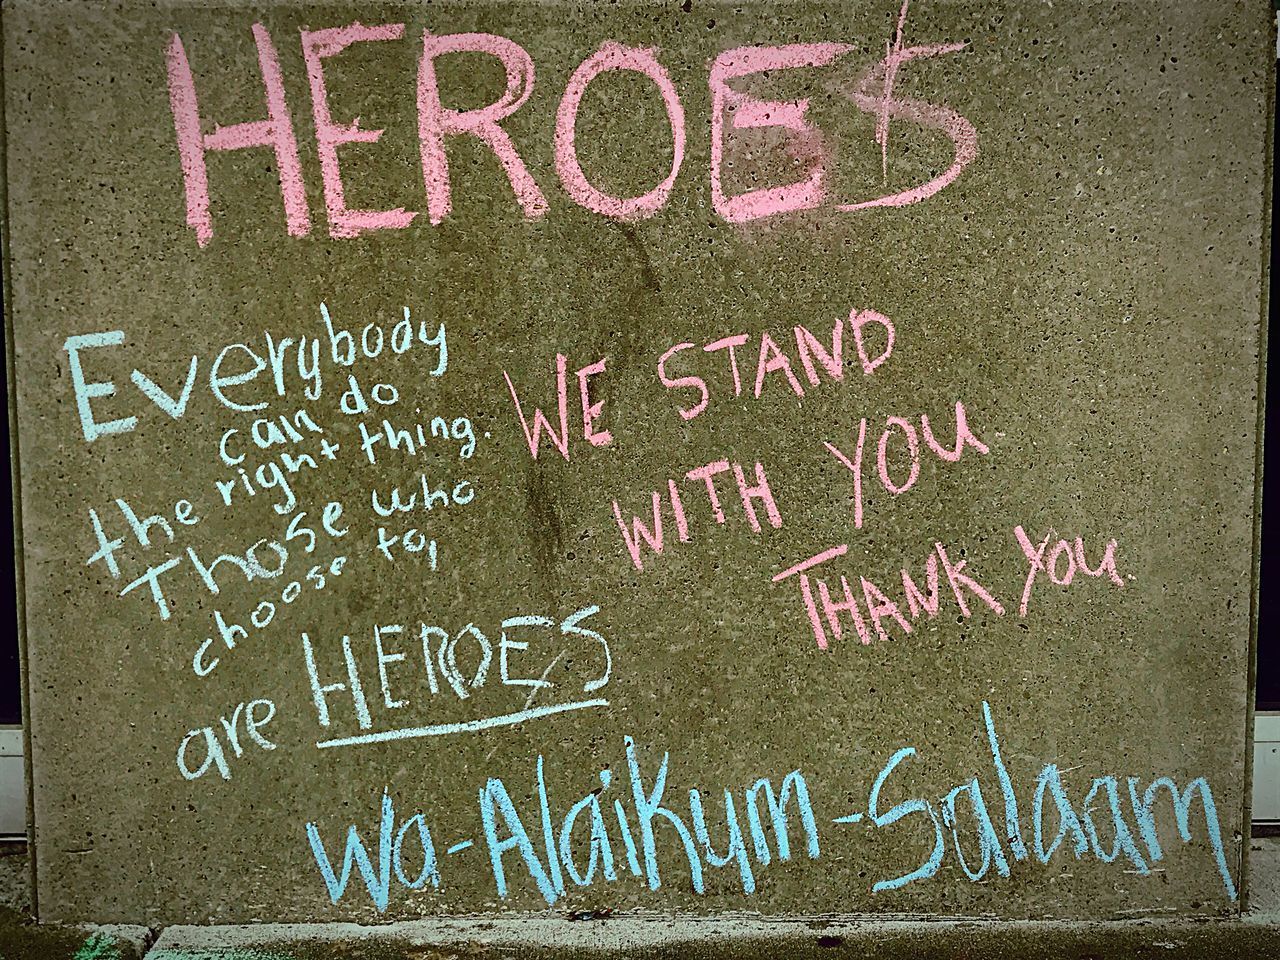 HEROES
Everybody
can do
the right thing.
Those who
choose to,
are HEROES
WE STAND
WITH YOU.
THANK YOU.
Wa-Alaikum-Salaam